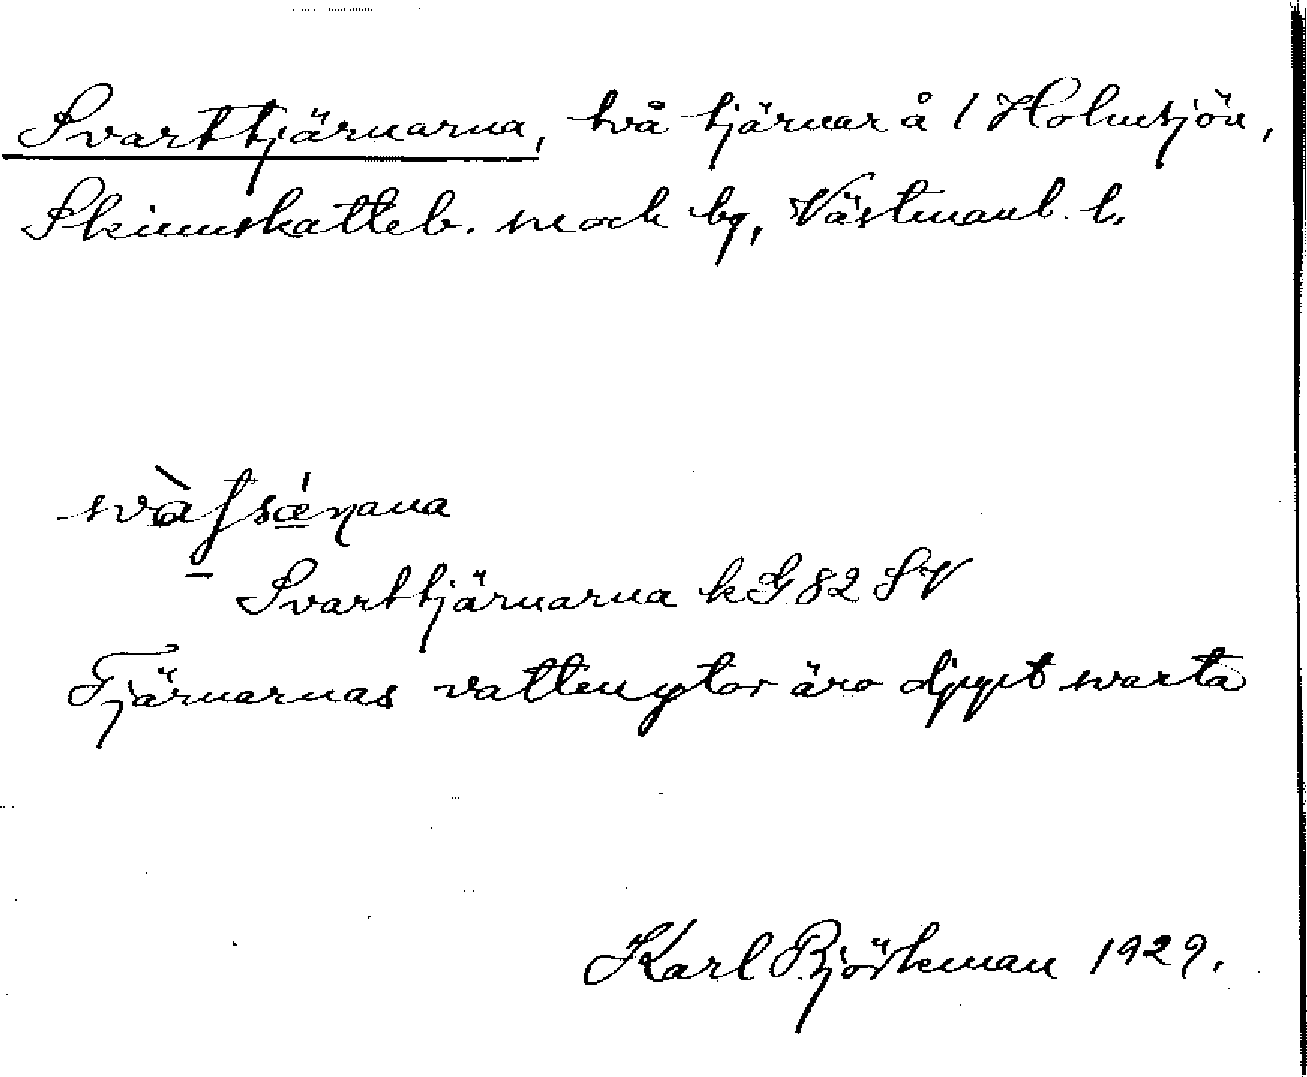 Svarttjärnarna, två tjärnar å 1 Holmsjön,
Skinnskatteb. sock bg, Västmanl. l.
Svarttjärnarna k G 82 SV
Tjärnarnas vattenytor äro djupt svarta
Karl Björkman 1929.